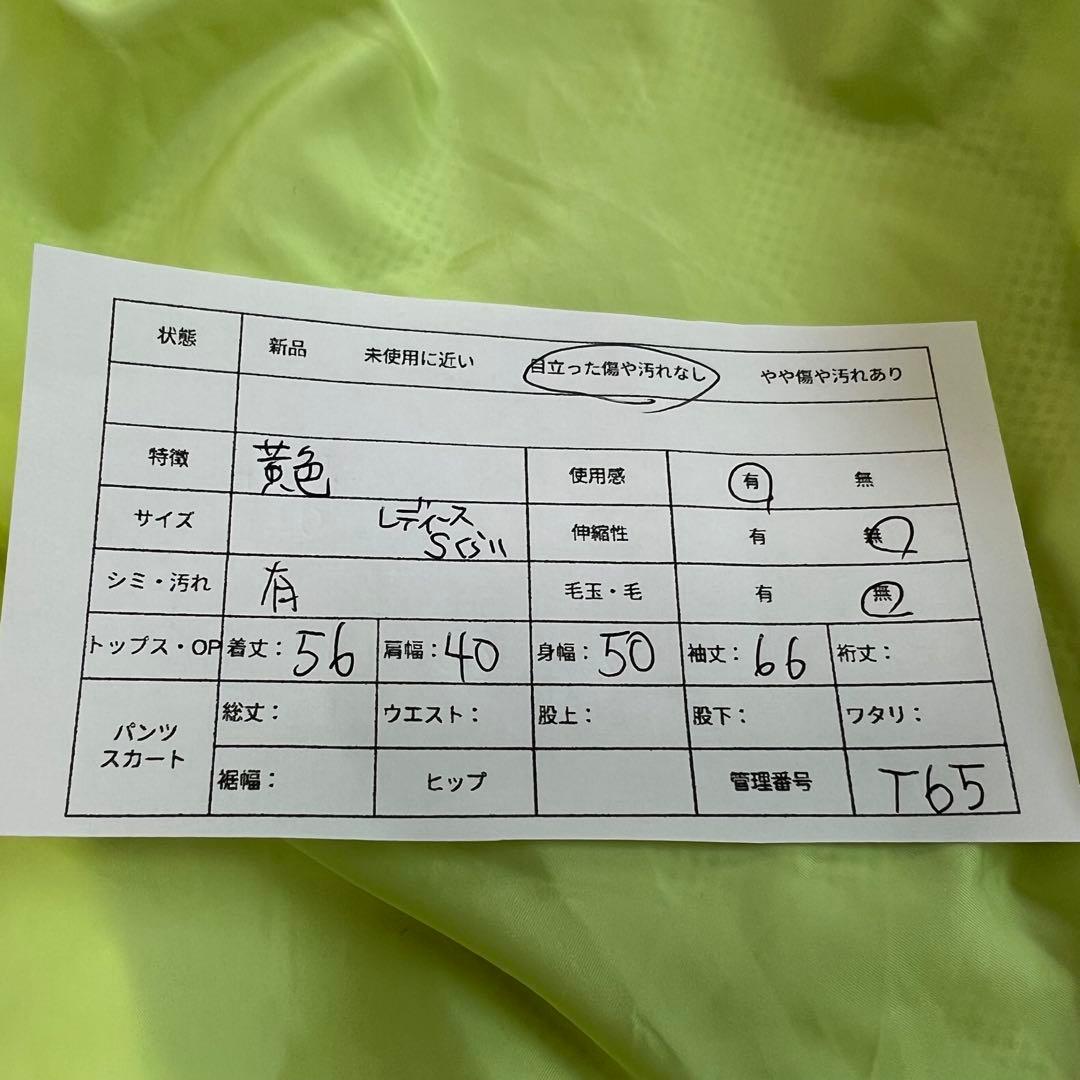 状態 新品 未使用に近い 目立った傷や汚れなし やや傷や汚れあり
特徴 黄色 使用感 有 無
サイズ レディース Sくらい 伸縮性 有 無
シミ・汚れ 有 毛玉・毛 有 無
トップス・OP 着丈：56 肩幅：40 身幅：50 袖丈：66 裄丈：
パンツ スカート 総丈： ウエスト： 股上： 股下： ワタリ：
裾幅： ヒップ 管理番号 T65